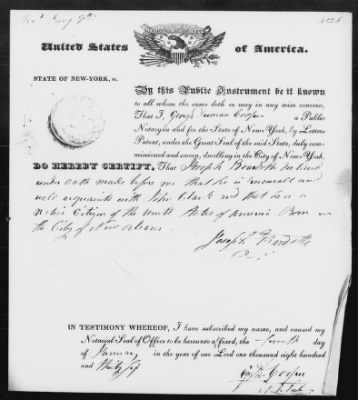 United States of America.
STATE OF NEW-YORK, ss.
By this Public Instrument be it known
to all whom the same doth or may in any wise concern,
That I, George Duncan Cooper a Public
Notary in and for the State of New-York, by Letters
Patent, under the Great Seal of the said State, duly com-
missioned and sworn, dwelling in the City of New-York,
DO HEREBY CERTIFY, That Joseph
under oath made before me that he is personally and
well acquainted with John Clark and that he is a
Native Citizen of the United States of America Born in
the City of New Orleans
Joseph
IN TESTIMONY WHEREOF, I have subscribed my name, and caused my
Notarial Seal of Office to be hereunto affixed, the day
of January in the year of our Lord one thousand eight hundred
and thirty
Cooper